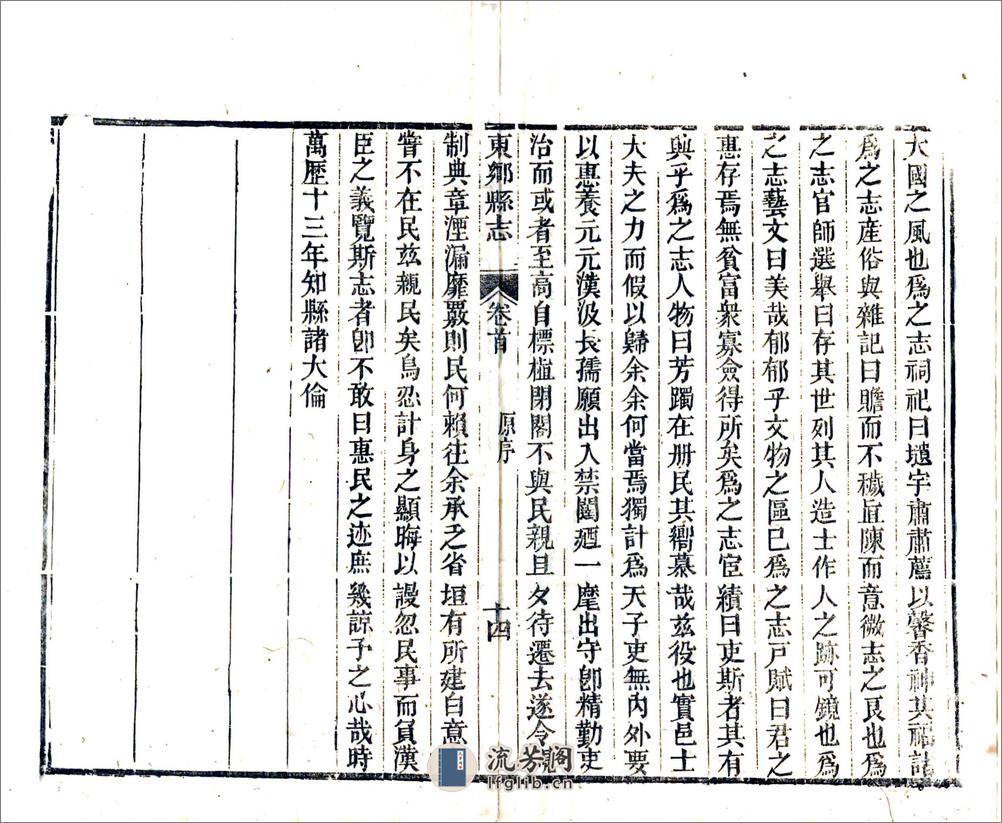 大國之風也爲之志祠祀曰壝宇肅肅薦以馨香神其福諸
爲之志產俗與雜記曰贍而不穢直陳而意微志之良也爲
之志官師選舉曰存其世列其人造士作人之跡可鏡也爲
之志藝文曰美哉郁郁乎文物之區已爲之志戸賦曰君之
惠存焉無貧富衆寡僉得所矣爲之志宦績曰吏斯者其有
興乎爲之志人物曰芳躅在册民其嚮慕哉兹役也實邑士
大夫之力而假以歸余余何當焉獨計爲天子吏無內外要
以惠養元元漢汲長孺願出入禁闥廼一麾出守卽精勤吏
治而或者至高自標榰閉閤不與民親且夕待遷去遂令
東鄉縣志 卷首 原序 十四
制典章湮漏靡覈則民何賴往余承乏省垣有所建白意
甞不在民兹親民矣烏忍計身之顯晦以謾忽民事而負漢
臣之義覽斯志者卽不敢曰惠民之迹庶幾諒予之心哉時
萬歷十三年知縣諸大倫
流芳閣
lfglib.cn